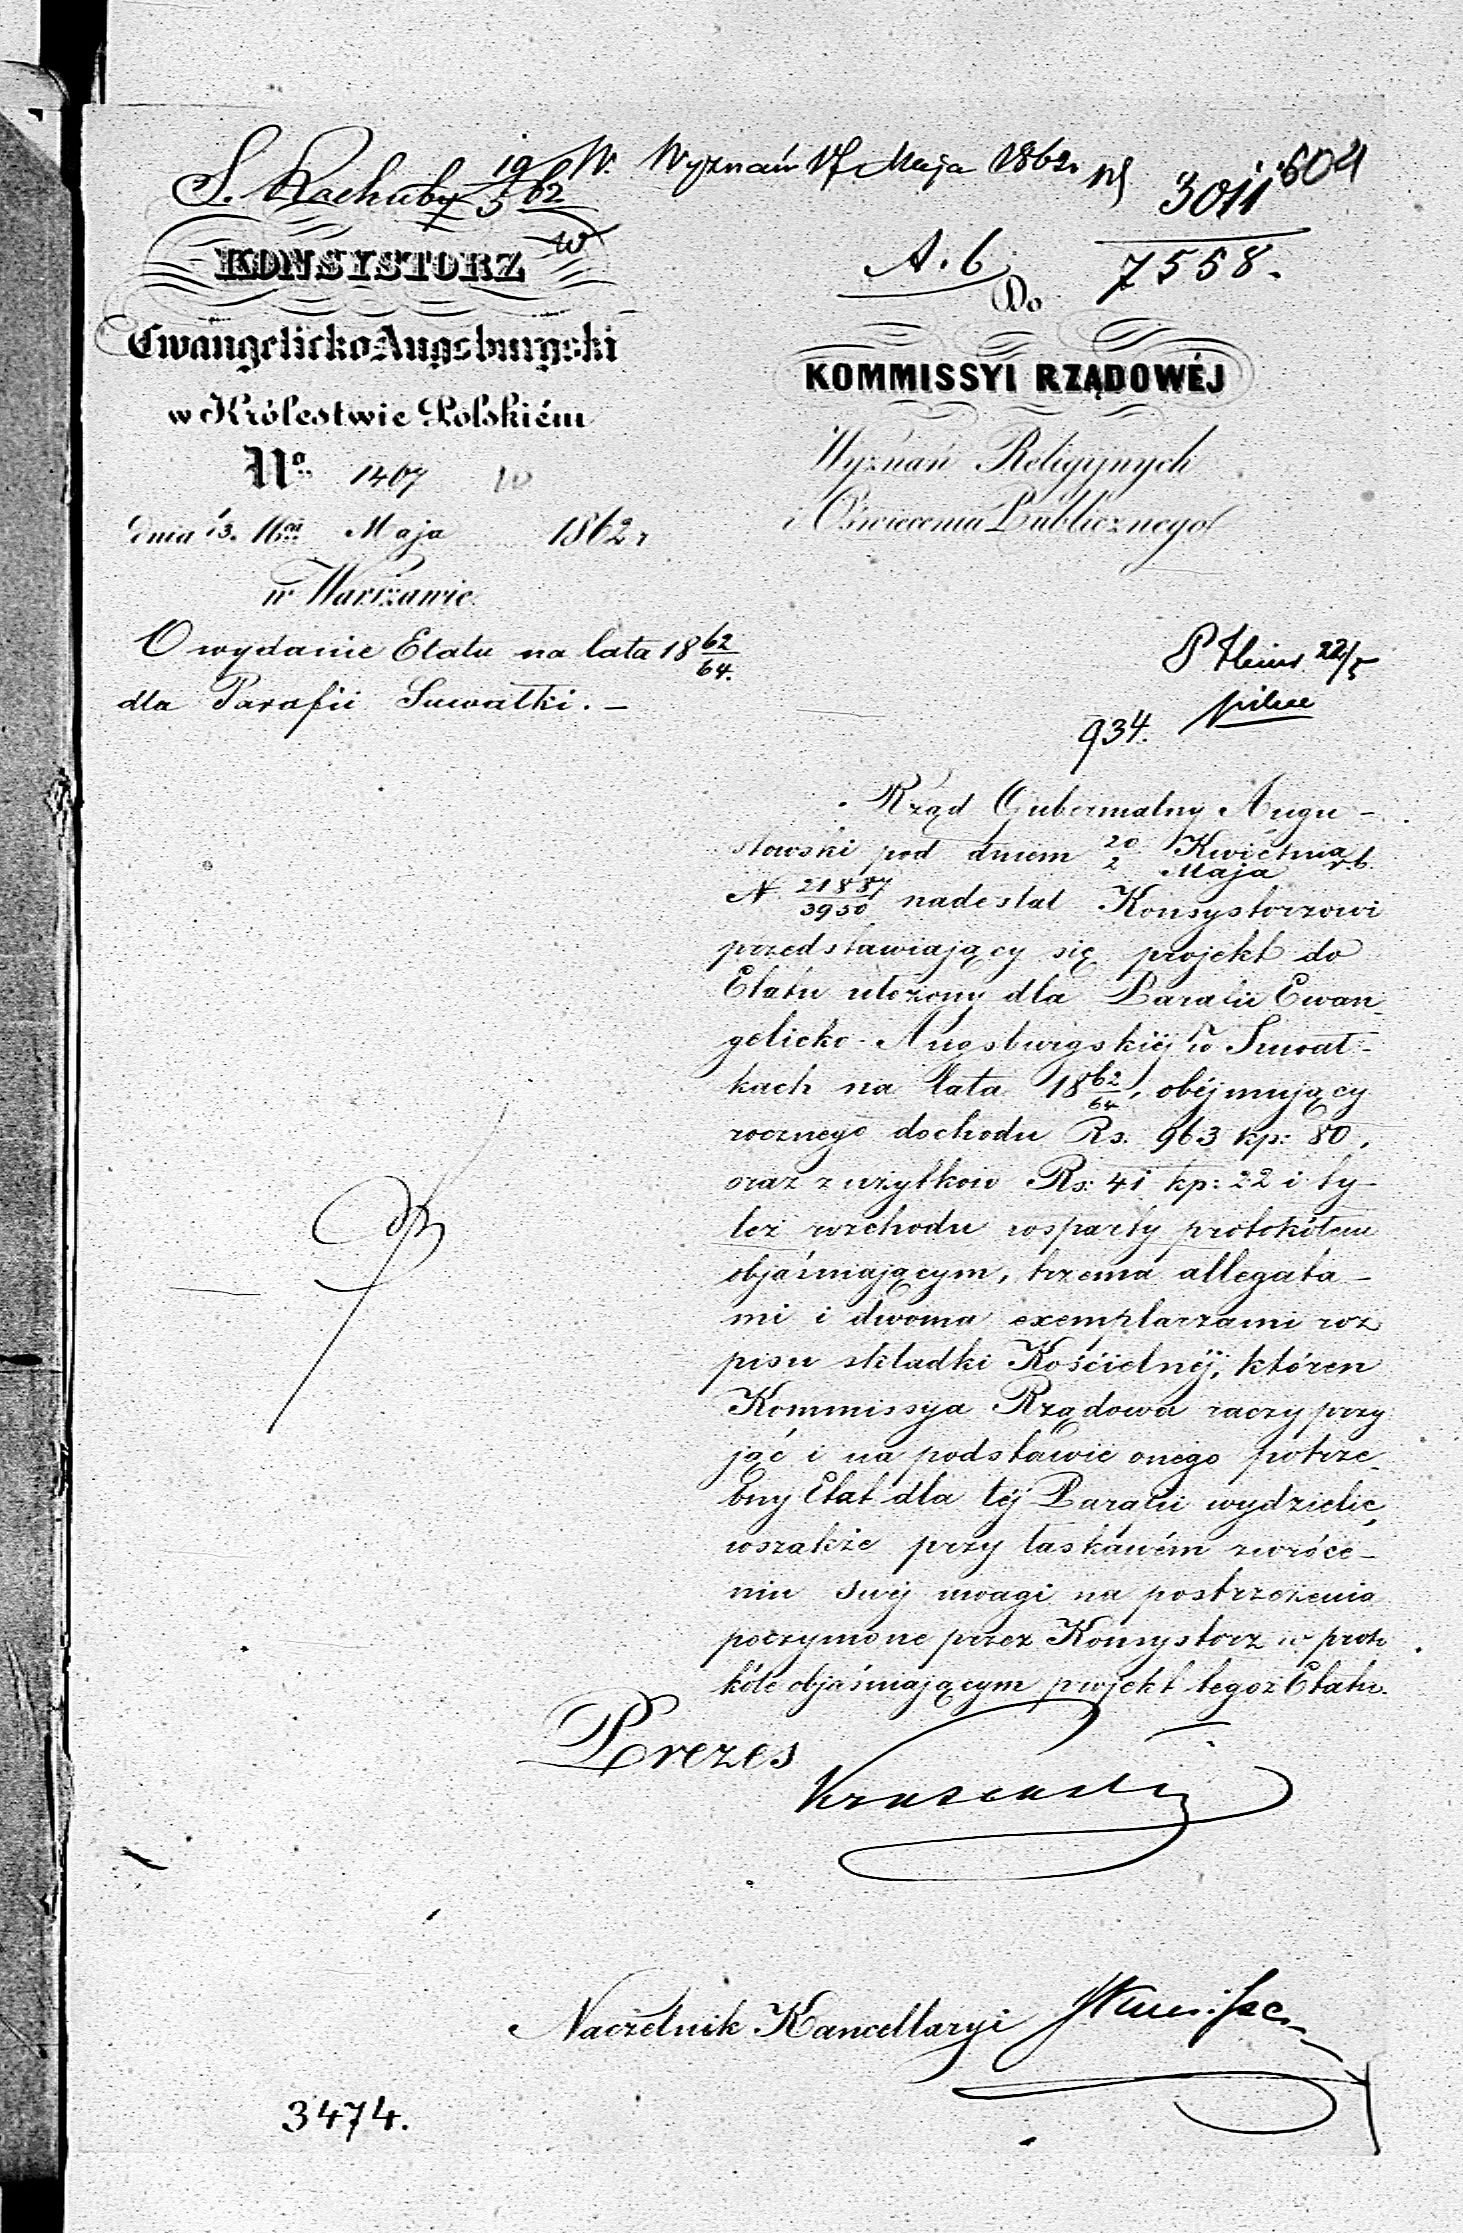 W. Wyznań 17 Maja 1862 N 3011 604
19/5 62
7558.
A. 6
KONSYSTORZ
Ewangelicko Augsburgski
w Królestwie Polskiém
No. 1407
dnia 13. Maja 1862 r
w Warszawie.
O wydanie Etatu na lata 18 62/64.
dla Parafii Suwałki. —
Do
KOMMISSYI RZĄDOWÉJ
Wyznań Religijnych
i Oświecenia Publicznego
22/5
934.
Rząd Gubernialny Augu-
stowski pod dniem 20/2 Kwietnia/Maja r.b.
N. 21887/3950 nadesłał Konsystorzowi
przedstawiający się projekt do
Etatu ułożony dla Parafii Ewan-
gelicko-Augsburgskiéj w Suwał-
kach na lata 18 62/64, obéjmujący
rocznego dochodu Rs. 963 kp: 80,
oraz z użytków Rs: 41 kp: 22 i ty-
leż rozchodu wsparty protokółem
objaśniającym, trzema allegata-
mi i dwoma exemplarzami roz
pisu składki Kościelnéj, któren
Kommissya Rządowa raczy przy
jąć i na podstawie onego potrze-
bny Etat dla téj Parafii wydzielić,
wszakże przy łaskawém zwróce-
niu swéj uwagi na postrzeżenia
poczynione przez Konsystorz w proto
kóle objaśniającym projekt tegoż Etatu.
Prezes
Naczelnik Kancellaryi
3474.